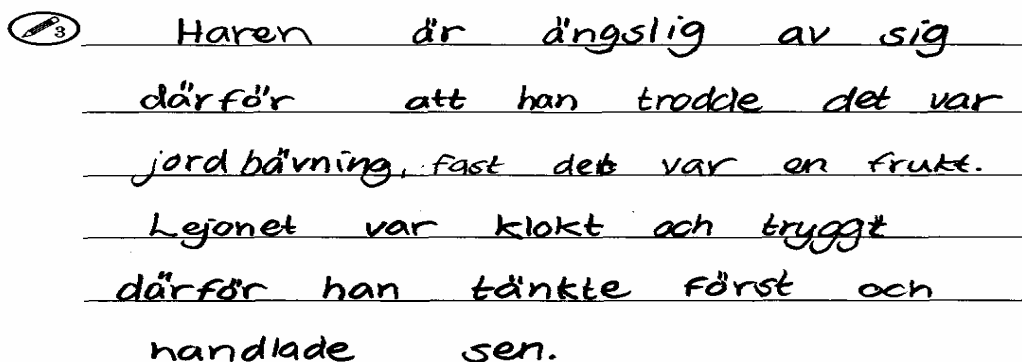 3 Haren är ängslig av sig
därför att han trodde det var
jordbävning, fast det var en frukt.
Lejonet var klokt och tryggt
därför han tänkte först och
handlade sen.